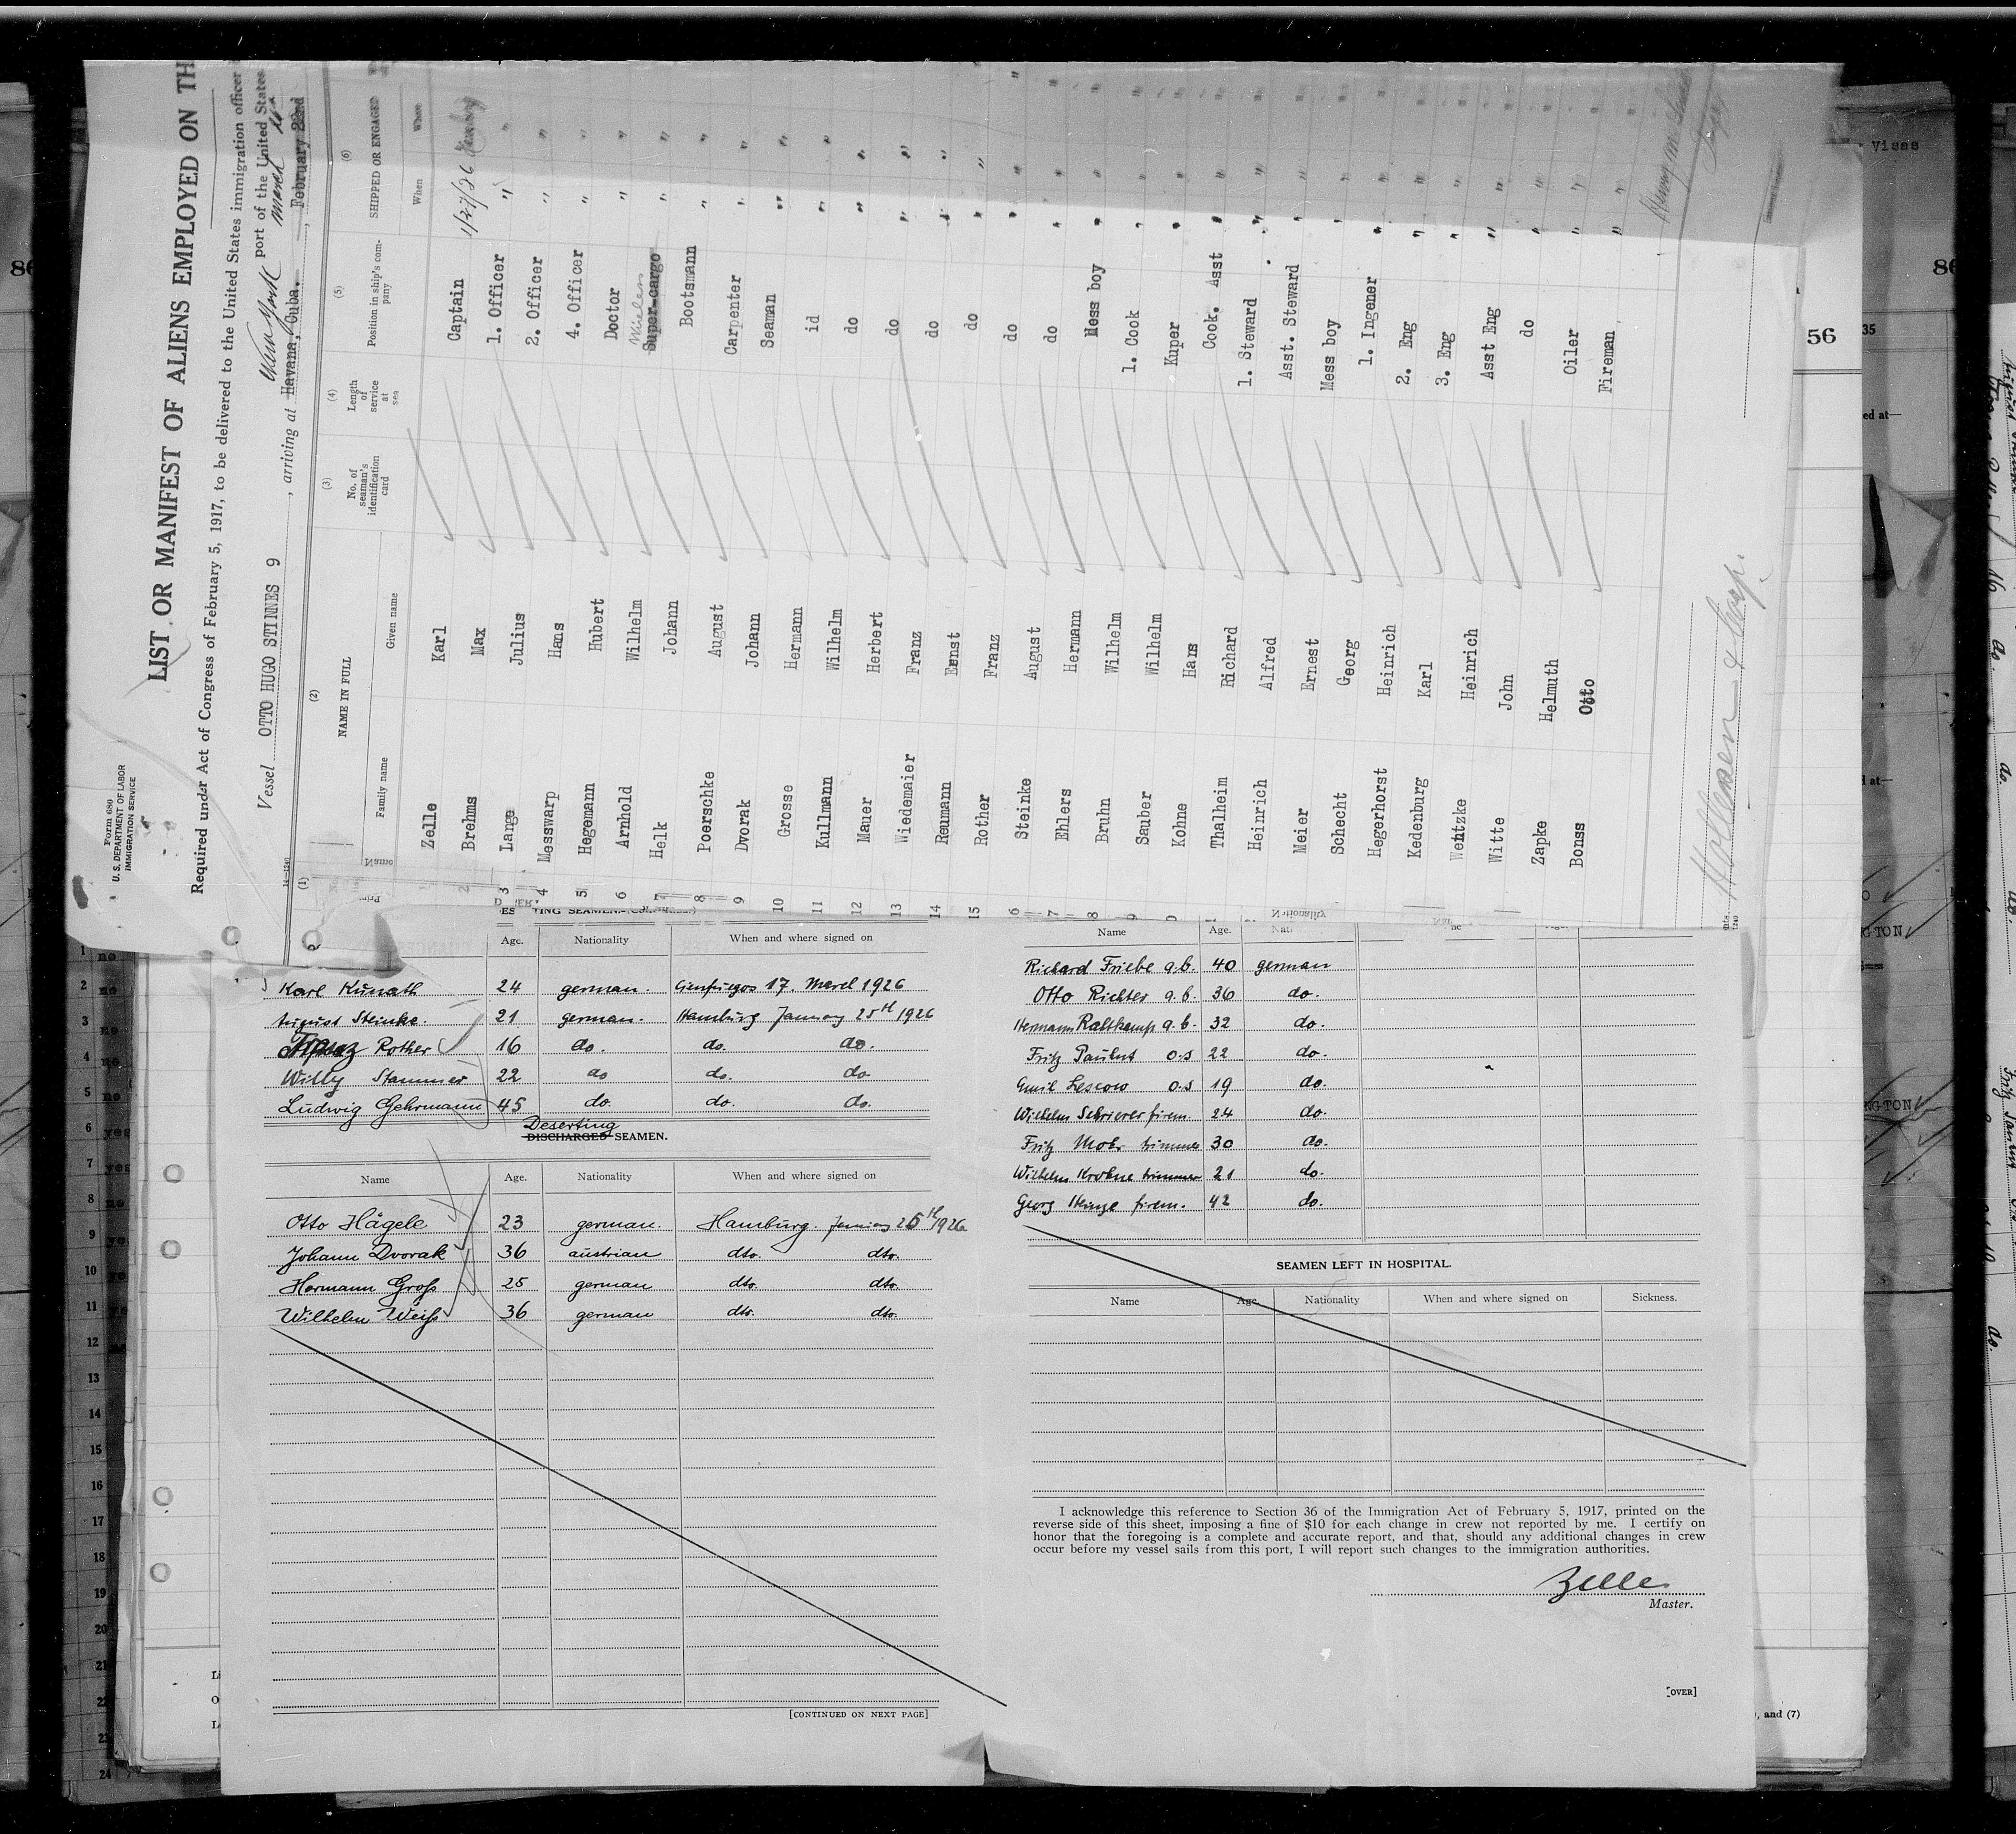 Form 680
U. S. DEPARTMENT OF LABOR
IMMIGRATION SERVICE
LIST OR MANIFEST OF ALIENS EMPLOYED ON TH
Required under Act of Congress of February 5, 1917, to be delivered to the United States immigration officer
port of the United States
Vessel OTTO HUGO STINNES 9, arriving at Havana, Cuba. New York March February 22nd
(1) (2) (3) (4) (5) (6)
NAME IN FULL
Family name Given name
No. of seaman's identification card
Length of service at sea
Position in ship's company
SHIPPED OR ENGAGED
When Where
Zelle Karl Captain 1/27/26 Hamburg
2 Brehms Max 1. Officer " "
3 Lange Julius 2. Officer " "
4 Messwarp Hans 4. Officer " "
5 Hegemann Hubert Doctor " "
6 Arnhold Wilhelm Super-cargo Wireless " "
7 Helk Johann Bootsmann " "
8 Poerschke August Carpenter " "
9 Dvorak Johann Seaman " "
10 Grosse Hermann id " "
11 Kullmann Wilhelm do " "
12 Mauer Herbert do " "
13 Wiedemaier Franz do " "
14 Reumann Ernst do " "
15 Rother Franz do " "
6 Steinke August do " "
7 Ehlers Hermann Mess boy " "
8 Bruhn Wilhelm 1. Cook " "
9 Sauber Wilhelm Kuper " "
0 Kohne Hans Cook. Asst " "
Thalheim Richard 1. Steward " "
Heinrich Alfred Asst. Steward " "
Meier Ernest Mess boy " "
Schecht Georg 1. Ingener " "
Hegerhorst Heinrich 2. Eng " "
Kedenburg Karl 3. Eng " "
Wentzke Heinrich Asst Eng " "
Witte John do " "
Zapke Helmuth Oiler " "
Bonss Otto Fireman " "
Age. Nationality When and where signed on
Karl Kunath 24 german. Cienfuegos 17. March 1926
August Steinke. 21 german. Hamburg January 25th 1926
Franz Rother 16 do. do. do.
Willy Stammer 22 do do. do
Ludwig Gehrmann 45 do. do. do.
Deserting
DISCHARGED SEAMEN.
Name Age. Nationality When and where signed on
Otto Hägele 23 german. Hamburg. January 25th 1926
Johann Dvorak 36 austrian dto. dto.
Hermann Groß 25 german dto. dto.
Wilhelm Weiß 36 german dto. dto.
[CONTINUED ON NEXT PAGE]
Name Age.
Richard Friebe a.b. 40 german
Otto Richter a.b. 36 do.
Hermann Raltkamp a.b. 32 do.
Fritz Paulus o.s 22 do.
Emil Lescow o.s 19 do.
Wilhelm Schrierer firem. 24 do.
Fritz Mohr trimmer 30 do.
Wilhelm Krohne trimmer 21 do.
Georg Heinze firem. 42 do.
SEAMEN LEFT IN HOSPITAL.
Name Age. Nationality When and where signed on Sickness.
I acknowledge this reference to Section 36 of the Immigration Act of February 5, 1917, printed on the
reverse side of this sheet, imposing a fine of $10 for each change in crew not reported by me. I certify on
honor that the foregoing is a complete and accurate report, and that, should any additional changes in crew
occur before my vessel sails from this port, I will report such changes to the immigration authorities.
Zelle
Master.
[OVER]
, and (7)
Visas
56
35
ed at—
1 no
2 no
3 no
4 no
5 no
6 yes
7 yes
8 no
9 ye
10 ye
11 ye
12
13
14
15
16
17
18
19
20
21
22
23
24